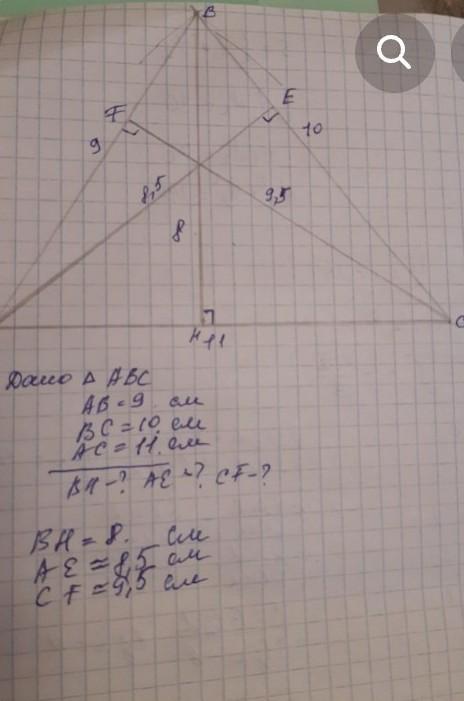 B
F
E
9
10
8,5
9,5
8
H 11
C
Дано Δ ABC
AB = 9 см
BC = 10 см
AC = 11 см
BH - ? AE - ? CF - ?
BH = 8. см
AE ≈ 8,5 см
CF ≈ 9,5 см